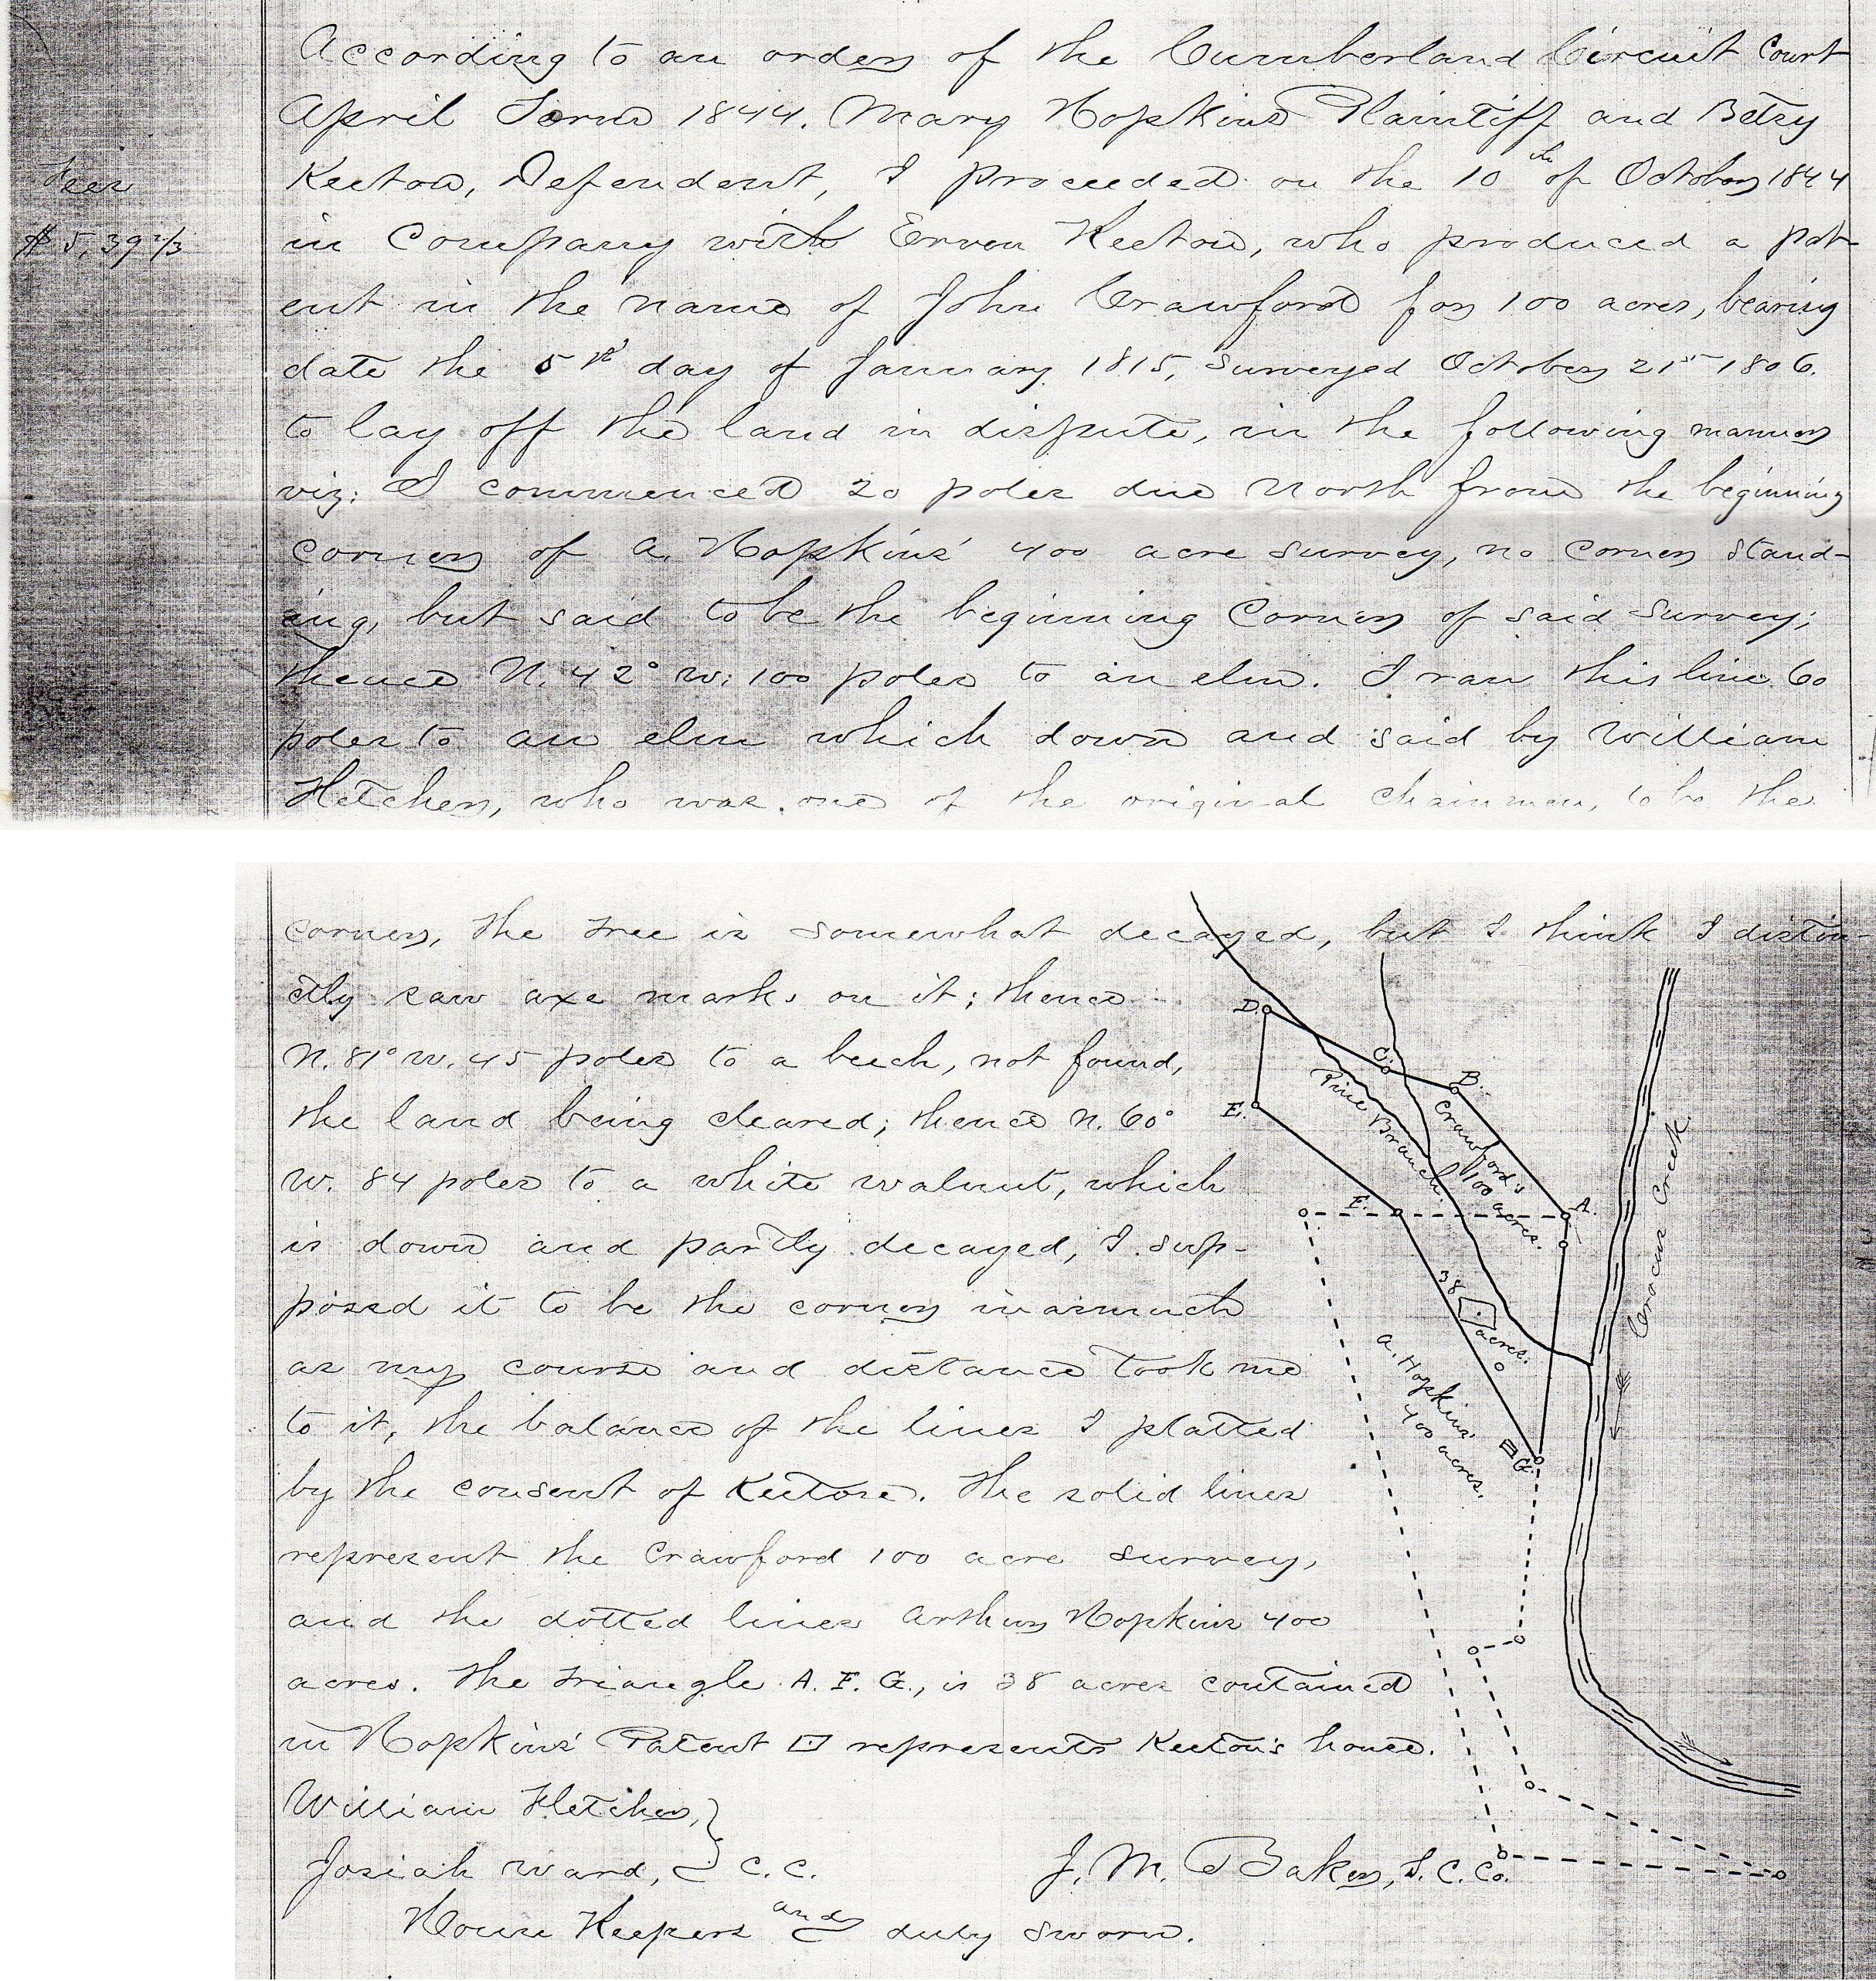 According to an order of the Cumberland Circuit Court
April Term 1844. Mary Hopkins Plaintiff and Betsy
Keeton, Defendent, I proceeded on the 10th of October 1844
Fees
$5,39 2/3
in Company with Ervon Keeton, who produced a pat-
ent in the name of John Crawford for 100 acres, bearing
date the 5th day of January 1815, Surveyed October 21st 1806.
to lay off the land in dispute, in the following manner
viz: I commenced 20 poles due North from the beginning
corner of A. Hopkins' 400 acre survey, no corner stand-
ing, but said to be the beginning Corner of said Survey;
thence N. 42° W. 100 poles to an elm. I ran this line 60
poles to an elm which down and said by William
Fletcher, who was one of the original chainmen, to be the
corner, the tree is somewhat decayed, but I think I distin-
ctly saw axe marks on it; thence
N. 81° W. 45 poles to a beech, not found,
the land being cleared; thence N. 60°
W. 84 poles to a white walnut, which
is down and partly decayed, I sup-
posed it to be the corner inasmuch
as my course and distance took me
to it, the balance of the lines I platted
by the consent of Keeton. The solid lines
represent the Crawford 100 acre survey,
and the dotted lines Arthur Hopkins 400
acres. The triangle A. F. G., is 38 acres contained
in Hopkins' Patent represents Keeton's house.
William Fletcher,
Josiah Ward, C. C.
J. M. Baker, S. C. Co.
House Keepers and duly sworn.
D.
C.
B.
E.
Pine Branch.
Crawford's
100 acres.
A.
F.
Crocus Creek.
38
acres.
A. Hopkins'
400 acres.
G.